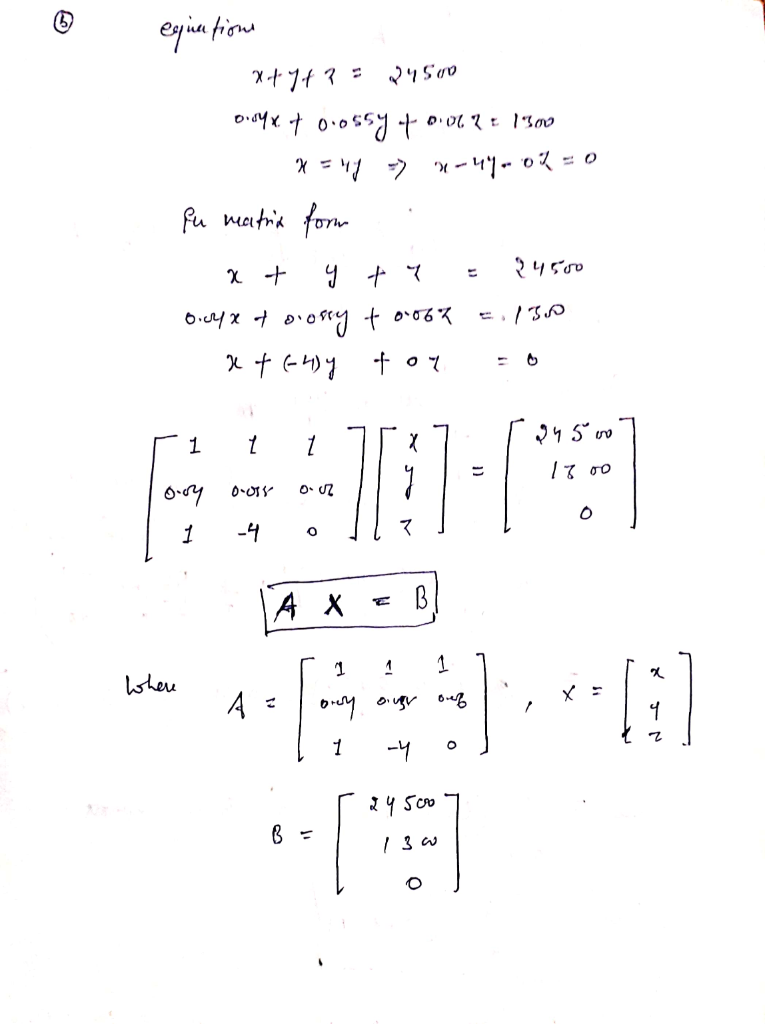 (b) equations
x+y+z = 24500
0.04x + 0.055y + 0.06z = 1300
x = 4y ⇒ x-4y-0z = 0
In matrix form
x + y + z = 24500
0.04x + 0.055y + 0.06z = 1300
x + (-4)y + 0z = 0
[1 1 1] [x] = [24500]
[0.04 0.055 0.06] [y] [1300]
[1 -4 0] [z] [0]
A X = B
where A = [1 1 1] , X = [x]
[0.04 0.055 0.06] [y]
[1 -4 0] [z]
B = [24500]
[1300]
[0]